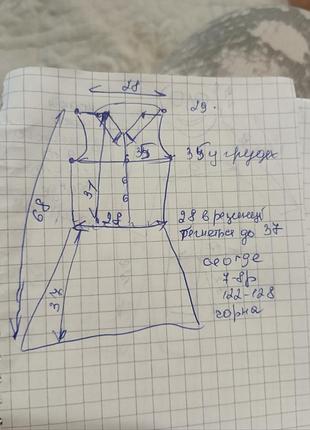 28
29.
35
35 у грудях
37
68
28
28 в резинці
тягнеться до 37
34
george
7-8р
122-128
чорна